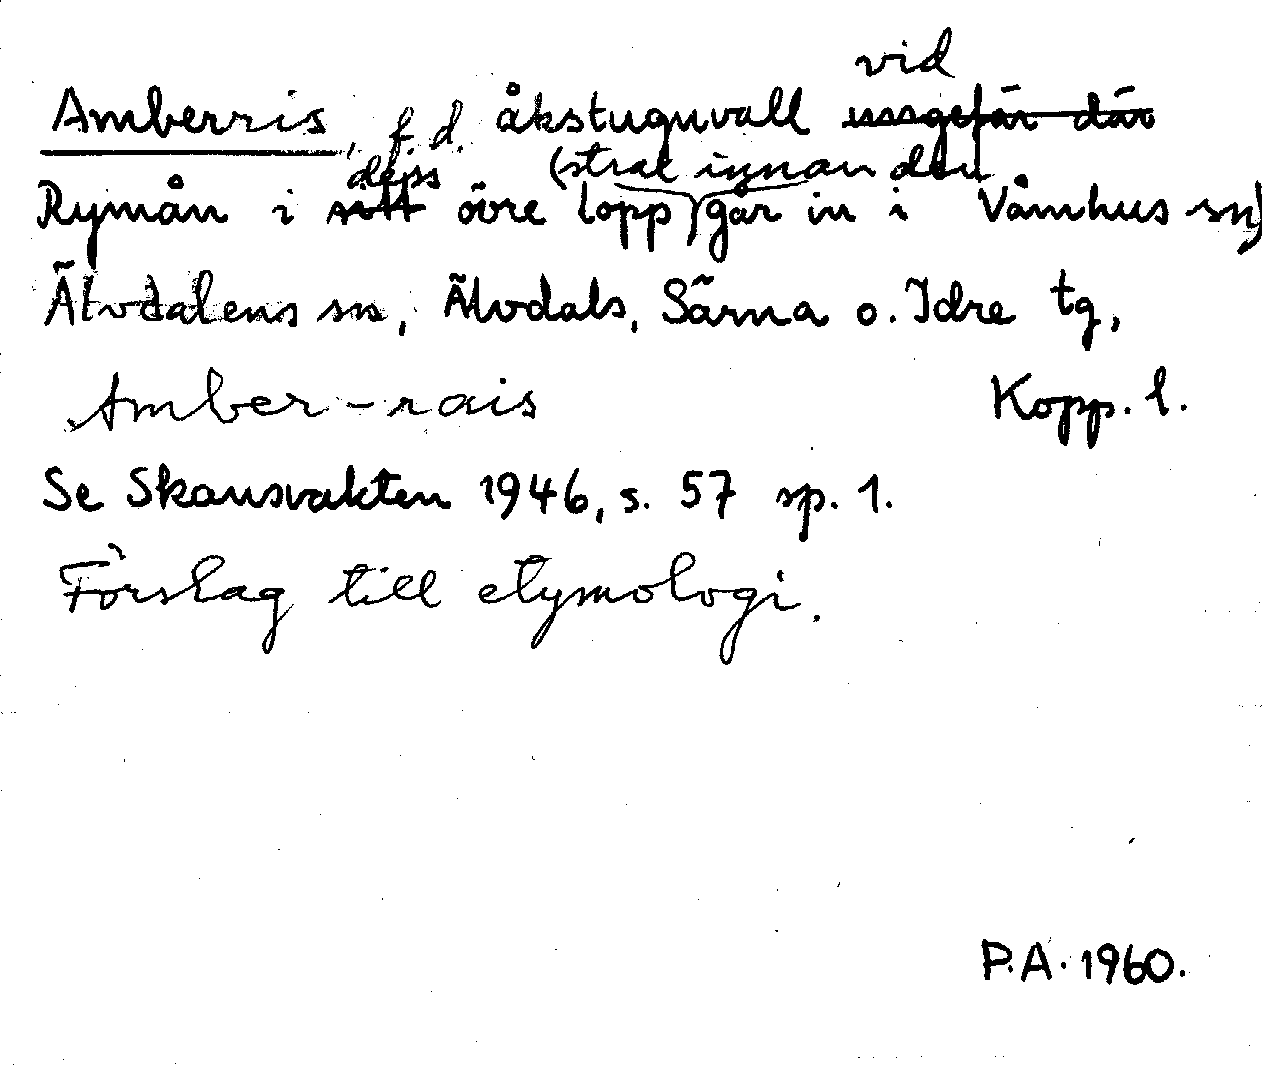 Amberris, f.d. åkstuguvall vid ungefär där
Rymån i dess sitt övre lopp (strax innan den går in i Våmhus sn)
Älvdalens sn, Älvdals, Särna o. Idre tg,
Amber-rais Kopp. l.
Se Skansvakten 1946, s. 57 sp. 1.
Förslag till etymologi.
P.A. 1960.